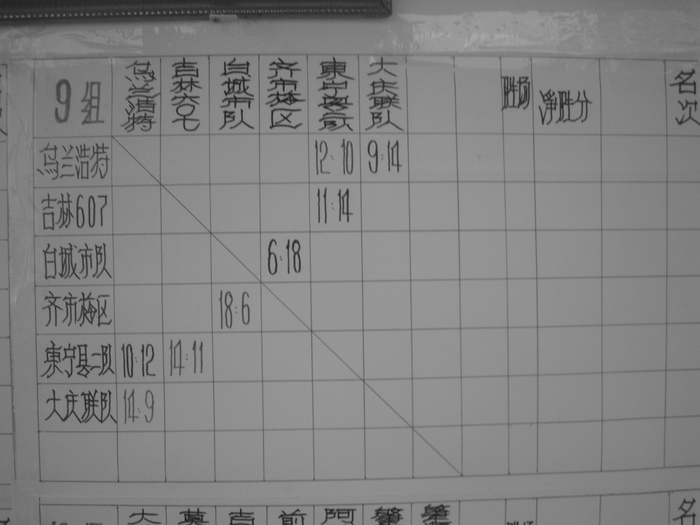 9组 乌兰浩特 吉林六〇七 白城市队 齐市梅区 東宁县二队 大庆联队 胜场 净胜分 名次
乌兰浩特 12:10 9:14
吉林607 11:14
白城市队 6:18
齐市梅区 18:6
東宁县二队 10:12 14:11
大庆联队 14:9
大 吉 前 阿 肇 肇 名